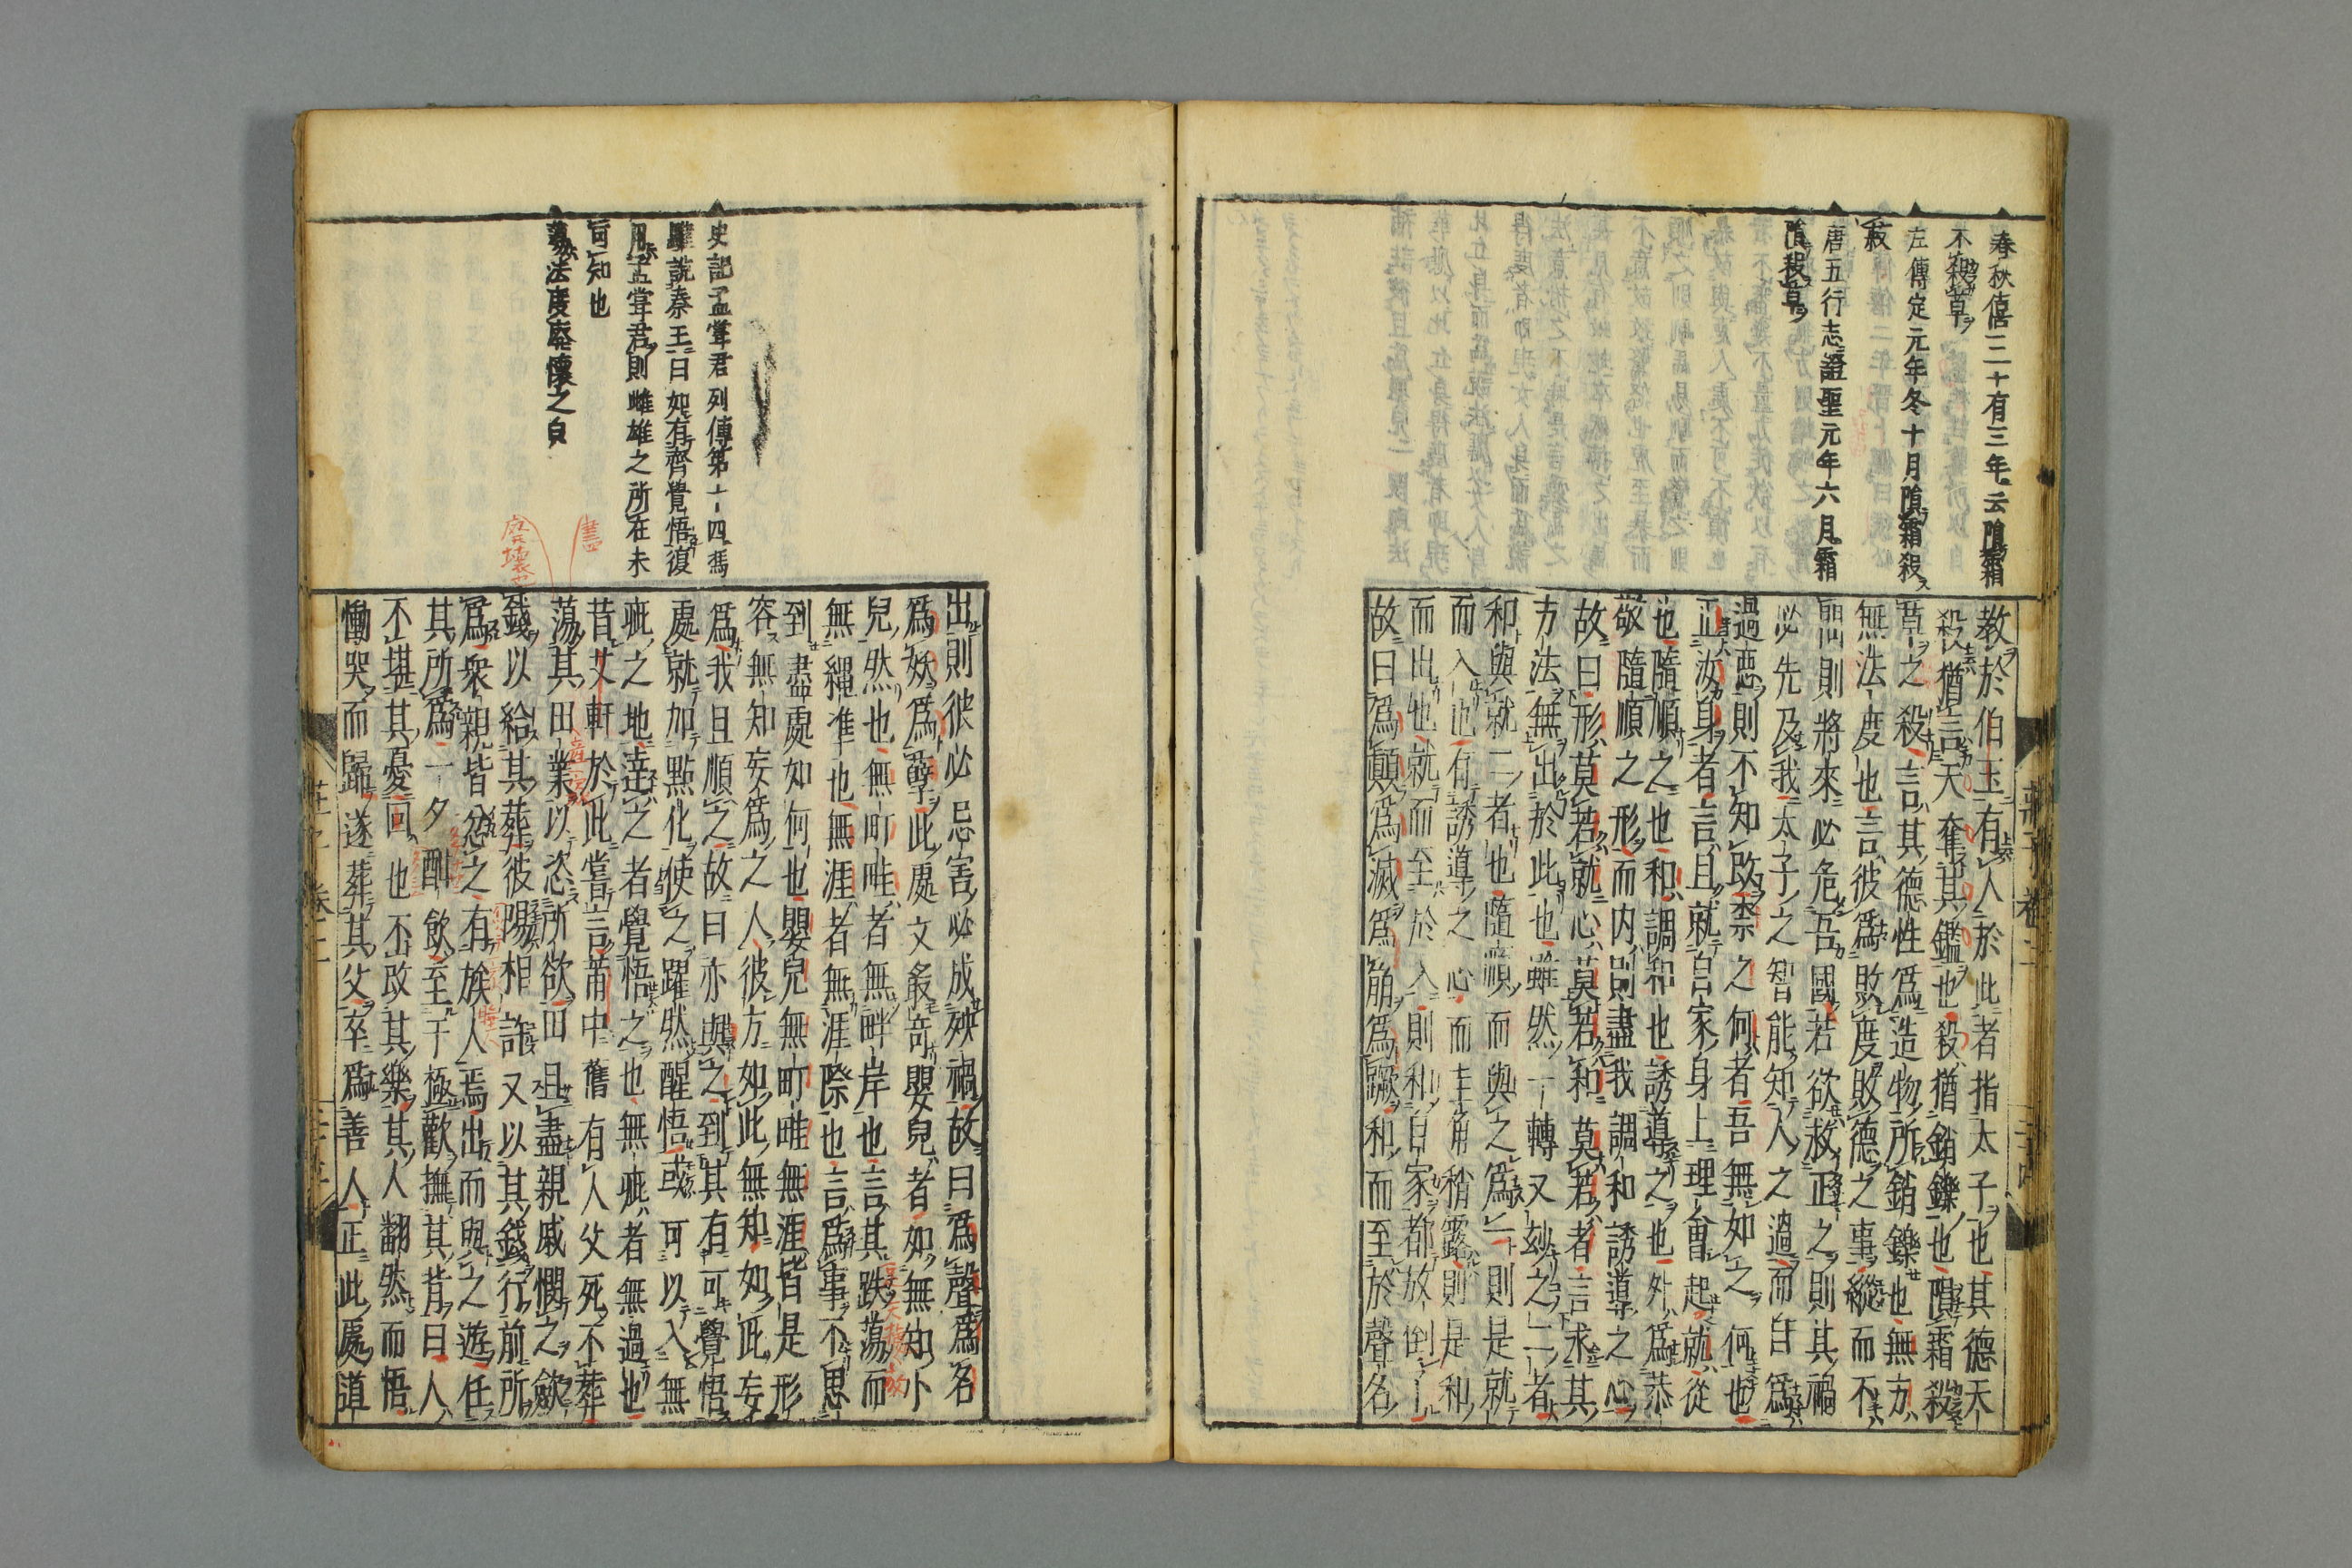 春秋僖三十有三年云隕霜
不殺草
左傳定元年冬十月隕霜殺
菽
唐五行志證聖元年六月霜
隕殺草
教於伯玉有人於此者指太子也其德天
殺猶言天奪其鑑也殺猶銷鑠也隕霜殺
草之殺言其德性爲造物所銷鑠也無方
無法度也言彼爲敗度敗德之事縱而不
問則將來必危吾國若欲救正之則其禍
必先及我太子之智能知人之過而自爲
過惡則不知改柰之何者吾無如之何也
正汝身者言且就自家身上理會起就從
也隨順之也和調和也誘導之也外爲恭
敬隨順之形而内則盡我調和誘導之心
故曰形莫若就心莫若和莫若者言求其
方法無出於此也雖然一轉又妙之二者
和與就二者也隨順而與之爲一則是就
而入也有誘導之心而圭角稍露則是和
而出也就而至於入則和自家都放倒了
故曰爲顛爲滅爲崩爲蹶和而至於聲名
莊子 卷二
史記孟嘗君列傳第十四馮
驩説秦王曰如有齊覺悟復
用孟嘗君則雌雄之所在未
可知也
蕩法度廢懷之皃
出則彼必忌害必成殃禍故曰爲聲爲名
爲妖爲孽此處文最奇嬰兒者如無知小
兒然也無町畦者無畔岸也言其跌蕩而
無繩準也無涯者無涯際也言爲事不思
到盡處如何也嬰兒無町畦無涯皆是形
容無知妄爲之人彼方如此無知如此妄
爲我且順之故曰亦與之到其有可覺悟
處就加點化使之躍然醒悟或可以入無
疵之地達之者覺悟之也無疵者無過也
昔艾軒於此嘗言莆中舊有人父死不葬
蕩其田業以恣所欲田且盡親戚憫之斂
錢以給其葬彼陽相許又以其錢行前所
爲衆親皆忿之有族人焉出而與之遊任
其所爲一夕酣飲至于極歡撫其背曰人
不堪其憂回也不改其樂其人翻然而悟
慟哭而歸遂葬其父卒爲善人正此處道
書
廃壊也